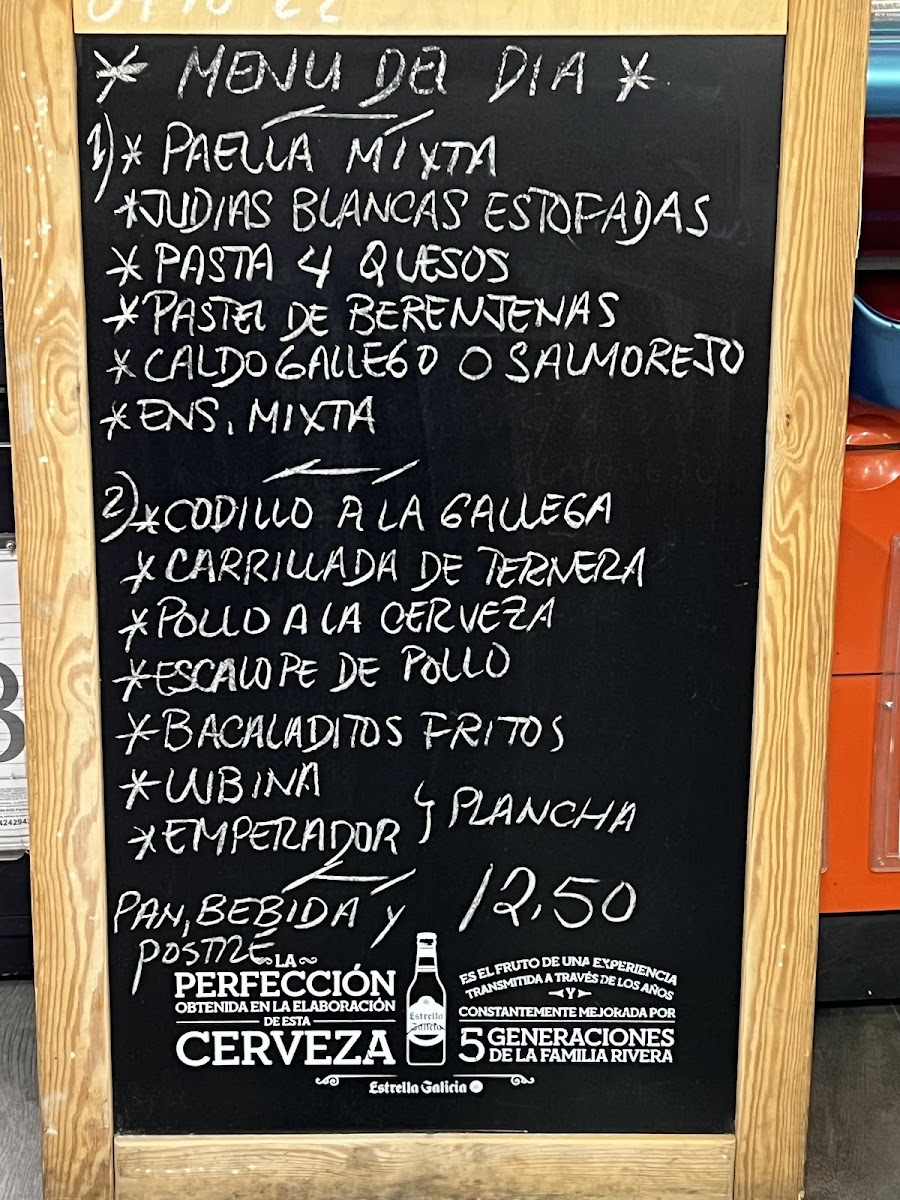 * MENU DEL DIA *
1) * PAELLA MIXTA
* JUDIAS BLANCAS ESTOFADAS
* PASTA 4 QUESOS
* PASTEL DE BERENJENAS
* CALDO GALLEGO O SALMOREJO
* ENS. MIXTA
2) * CODILLO A LA GALLEGA
* CARRILLADA DE TERNERA
* POLLO A LA CERVEZA
* ESCALOPE DE POLLO
* BACALADITOS FRITOS
* LUBINA
* EMPERADOR } PLANCHA
PAN, BEBIDA Y 12,50
POSTRE
LA
PERFECCIÓN
OBTENIDA EN LA ELABORACIÓN
DE ESTA
CERVEZA
Estrella
Galicia
ES EL FRUTO DE UNA EXPERIENCIA
TRANSMITIDA A TRAVÉS DE LOS AÑOS
Y
CONSTANTEMENTE MEJORADA POR
5 GENERACIONES
DE LA FAMILIA RIVERA
Estrella Galicia